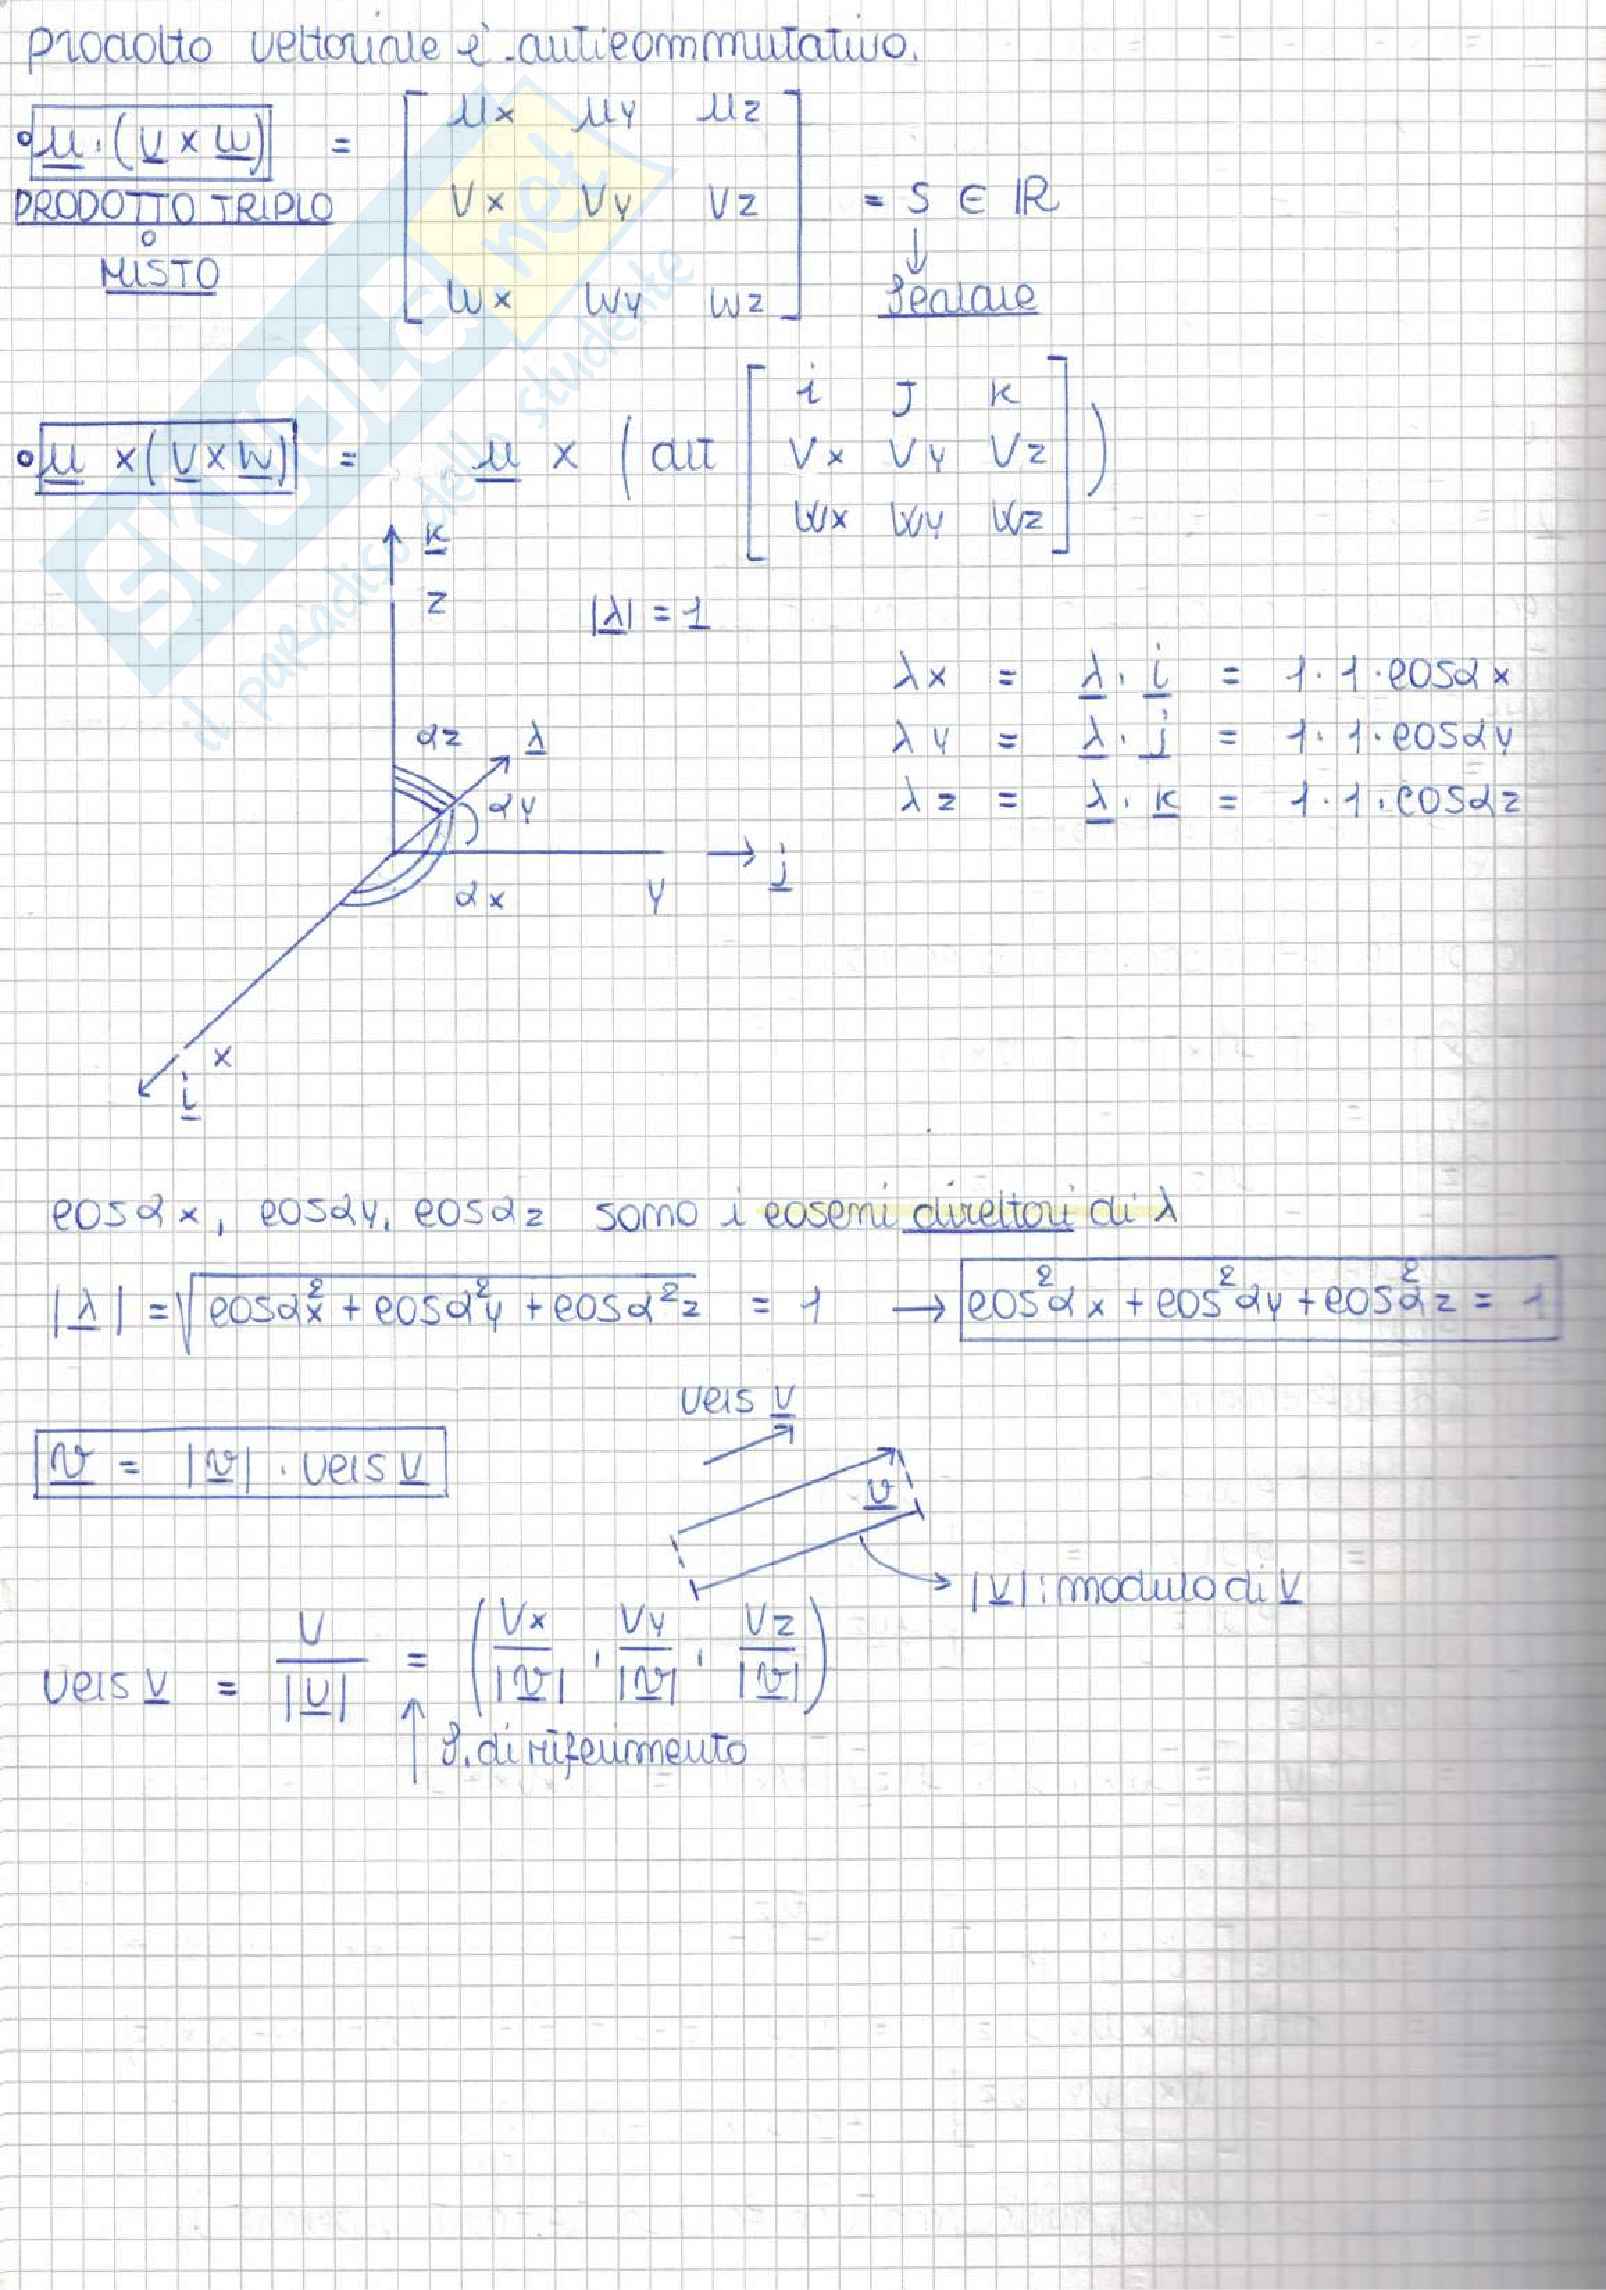 prodotto vettoriale è anticommutativo.
• u · (v × w) = [ ux uy uz
vx vy vz
wx wy wz ] = s ∈ ℝ
PRODOTTO TRIPLO
o
MISTO
↓
Scalare
• u × (v × w) = u × ( det [ i j k
vx vy vz
wx wy wz ] )
k
z
|λ| = 1
λx = λ · i = 1 · 1 · cosαx
λy = λ · j = 1 · 1 · cosαy
λz = λ · k = 1 · 1 · cosαz
αz λ
αy
j
αx y
x
i
cosαx, cosαy, cosαz sono i coseni direttori di λ
|λ| = √cosα²x + cosα²y + cosα²z = 1 → cos²αx + cos²αy + cos²αz = 1
vers v
v = |v| · vers v
v
|v| : modulo di v
vers v = v / |v| = ( vx / |v| , vy / |v| , vz / |v| )
↑ S. di riferimento
SKUOLA.net
il paradiso dello studente